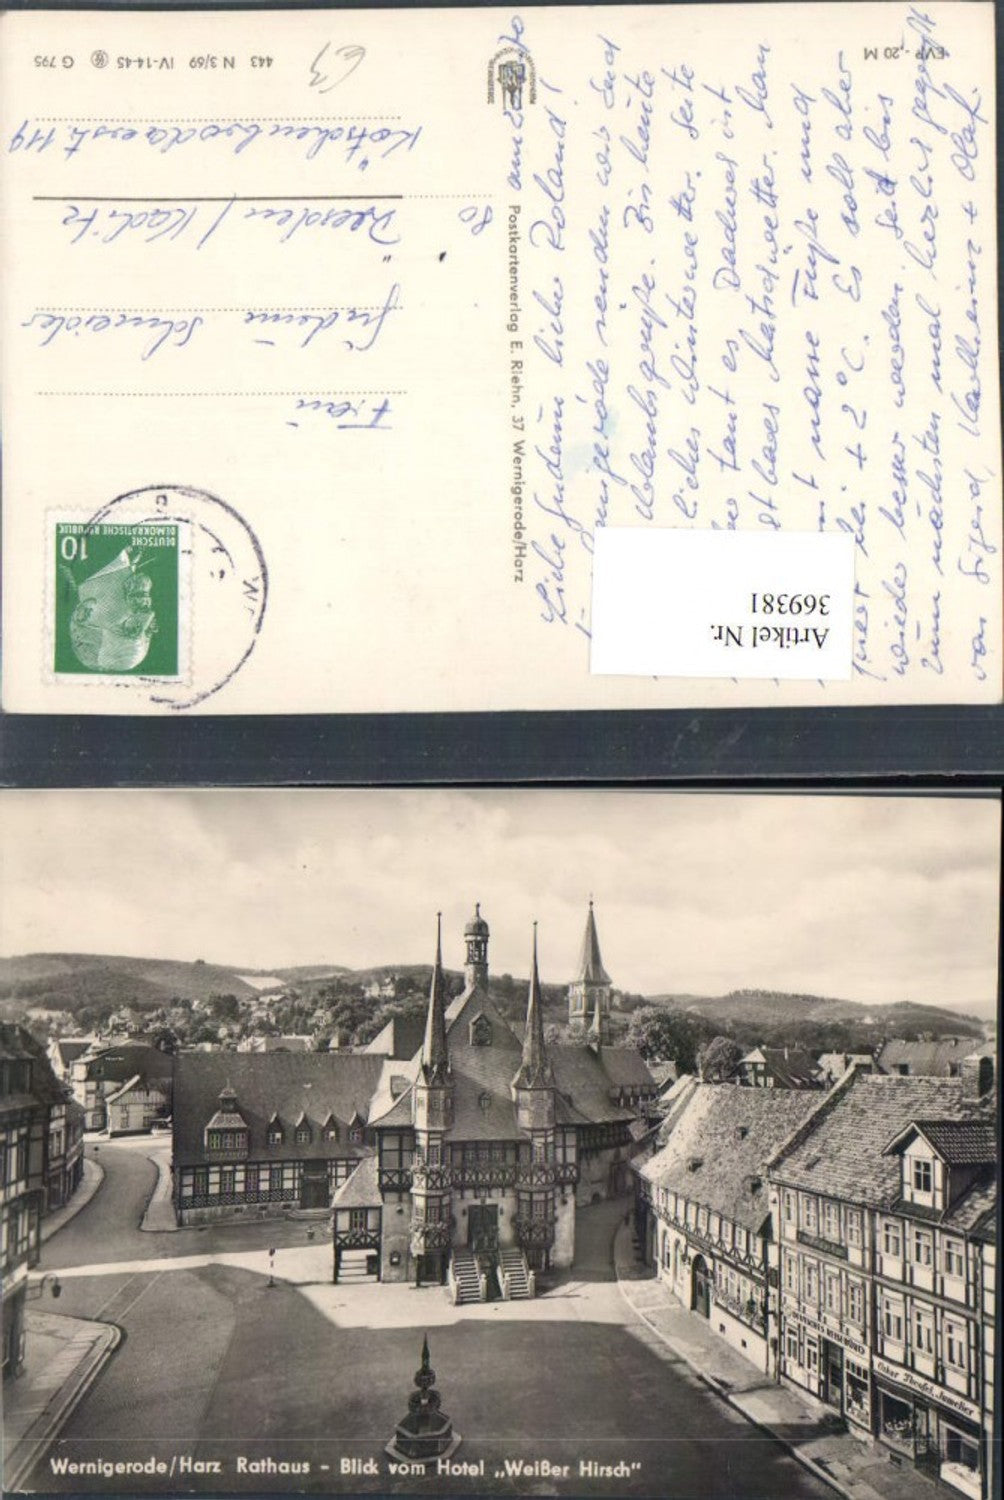 443 N 3/69 IV-14-45 G 795
EVP -,20 M
63
DEUTSCHE
DEMOKRATISCHE REPUBLIK
10
Frau
Gudrun Schneider
80 Dresden/Kaditz
Kötzschenbrodaerstr. 119
Postkartenverlag E. Riehn, 37 Wernigerode/Harz
Liebe Gudrun lieber Roland!
senden wir Euch
Urlaubsgrüße. Bis heute
liches Winterwetter. Seite
taut es. Dadurch ist
Matschwetter. Man
nasse Füße und
+ 2°C. Es soll aber
wieder besser werden. Seid bis
zum nächsten mal herzlich gegrüßt
von Sigrid, Karlheinz + Olaf.
Artikel Nr.
369381
Oskar Theufel Juwelier
Wernigerode/Harz Rathaus – Blick vom Hotel „Weißer Hirsch“